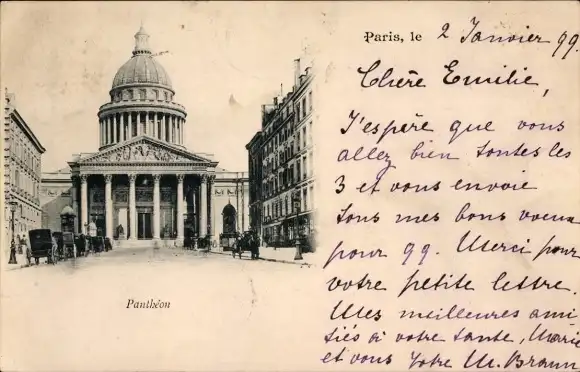 Paris, le 2 Janvier 99
Chère Emilie,
J'espère que vous
allez bien toutes les
3 et vous envoie
tous mes bons voeux
pour 99. Merci pour
votre petite lettre.
Mes meilleures ami
tiés à votre tante, Marie
et vous Votre M. Braun
Panthéon